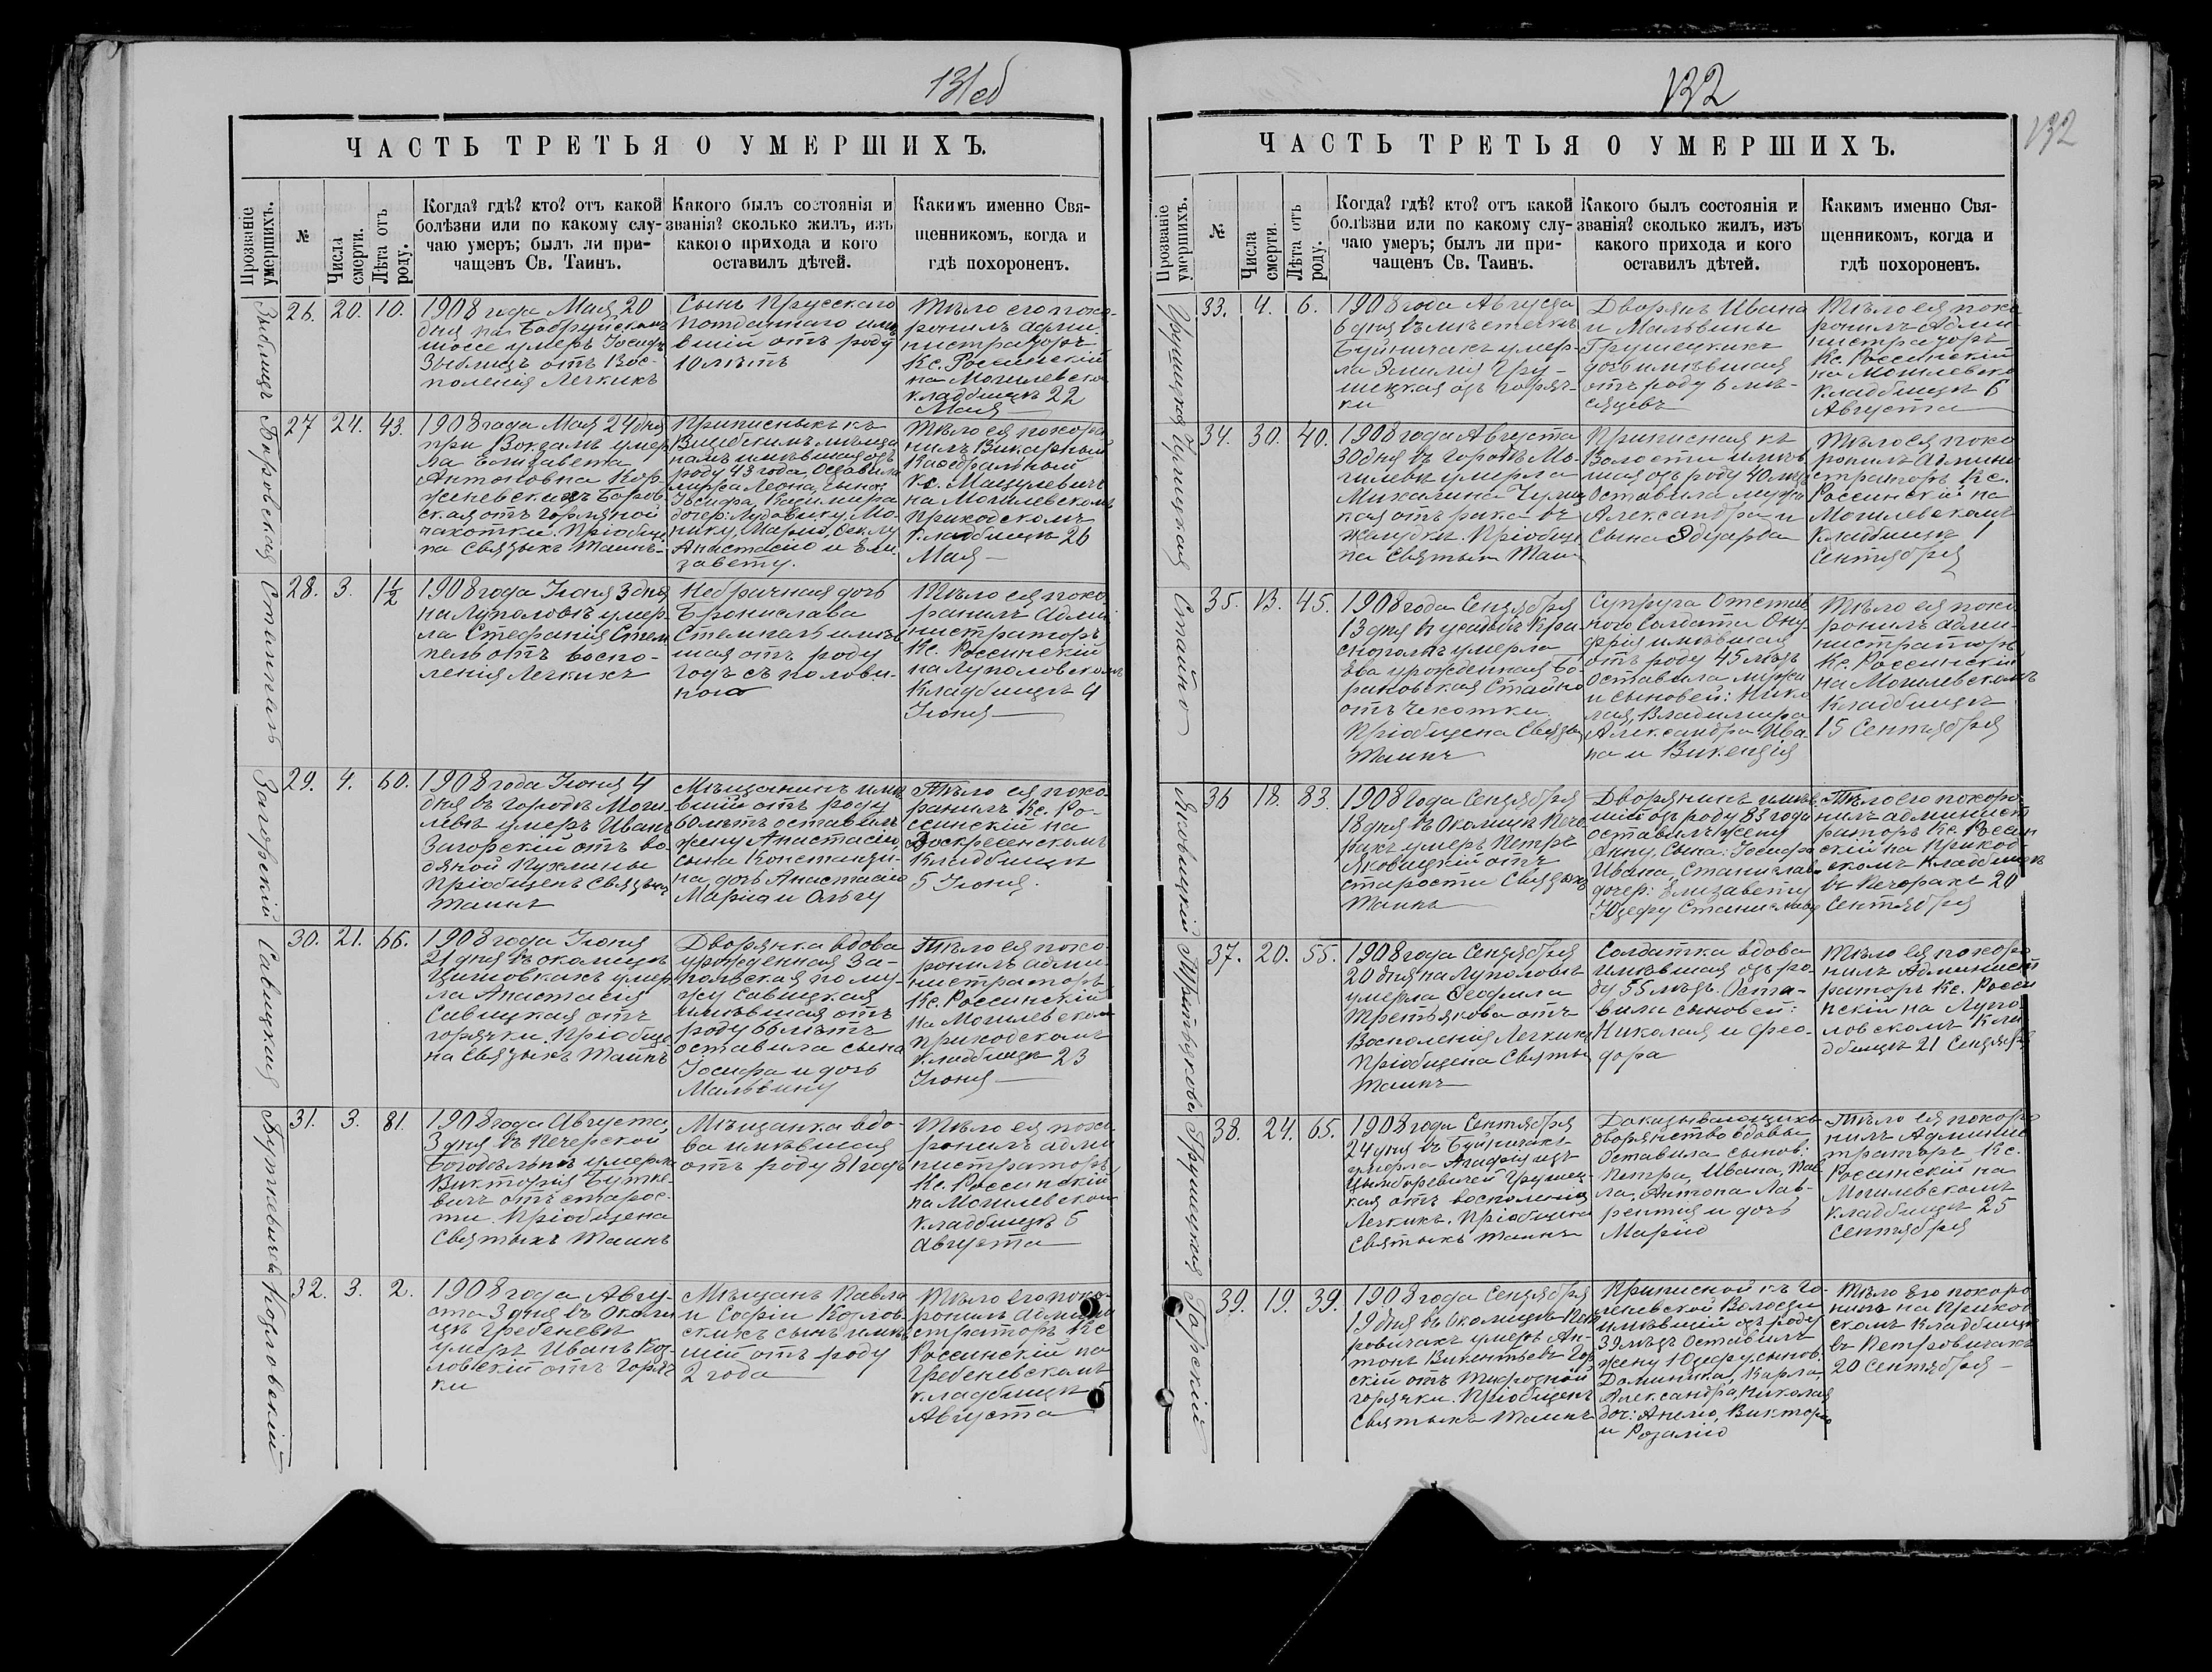 131об
ЧАСТЬ ТРЕТЬЯ О УМЕРШИХЪ.
Прозваніе умершихъ.
№
Числа смерти.
Лѣта отъ роду.
Когда? гдѣ? кто? отъ какой
болѣзни или по какому слу-
чаю умеръ; былъ ли при-
чащенъ Св. Таинъ.
Какого былъ состоянія и
званія? сколько жилъ, изъ
какого прихода и кого
оставилъ дѣтей.
Какимъ именно Свя-
щенникомъ, когда и
гдѣ похороненъ.
Зыблицъ
26. 20. 10.
1908 года Мая 20
дня на Бобруйскомъ
шоссе умеръ Іосифъ
Зыблицъ отъ Вос-
поленія Легкихъ
Сынъ Прусскаго
Потданнаго имѣ
вшій отъ роду
10 лѣтъ
Тѣло его похо-
ронилъ Адми-
нистраторъ
Кс. Россинскій
на Могилевско
кладбищѣ 22
Мая
Боровская
27 24. 43.
1908 года Мая 24 дня
при Вокзалѣ умер
ла Елизавета
Антоновна
Боров-
ская отъ Горляной
чахотки. Пріобще
на Святыхъ Таинъ
Приписныхъ къ
Витебскимъ мѣща
намъ имѣвшая отъ
роду 43 года, Оставила
мужа Леона, сынов:
Іосифа, Казимира
дочер: Людовику, Мо-
нику, Марію, Теклю
Анастасію и Ели
завету.
Тѣло ея похоро
нилъ Викарный
Каѳедральный
Кс. Мацулевичъ
на Могилевскомъ
Приходскомъ
Кладбищѣ 26
Мая
Стемпаль
28. 3. 1½
1908 года Іюня 3 дня
на Луполовѣ умер-
ла Стефанія Стем
пель отъ воспо-
ленія Легкихъ
Небрачная дочь
Брониславы
Стемпаль имѣв
шая отъ роду
годъ съ полови-
ною
Тѣло ея похо
ронилъ Адми
нистраторъ
Кс. Россинскій
на Луполовскомъ
Кладбищѣ 4
Іюня
Загорскій
29. 4. 60.
1908 года Іюня 4
дня въ городѣ Моги
левѣ умеръ Иванъ
Загорскій отъ во-
дяной пухлины
Пріобщенъ Святыхъ
Таинъ
Мѣщанинъ имѣ
вшій отъ роду
60 лѣтъ оставилъ
жену Анастасію
сына Константи-
на, дочь Анастасію
Марію и Ольгу
Тѣло ея похо
ронилъ Кс. Ро-
ссинскій на
Воскресенскомъ
Кладбищѣ
5 Іюня.
Савицкая
30. 21. 66.
1908 года Іюня
21 дня въ околицѣ
умер
ла Анастасія
Савицкая отъ
горячки. Пріобще
на Святыхъ Таинъ
Дворянка вдова
урожденная За-
польская по му-
жу Савицкая
имѣвшая отъ
роду 66 лѣтъ
оставила сына
Іосифа и дочь
Мальвину
Тѣло ея похо-
ронилъ адми-
нистраторъ
Кс. Россинскій
на Могилевском
приходскомъ
Кладбищѣ 23
Іюня
Буткевичева
31. 3. 81.
1908 года Августа
3 дня въ Печерской
Богодѣльнѣ умерла
Викторія Бутке-
вичъ отъ старос-
ти. Пріобщена
Святыхъ Таинъ
Мѣщанка вдо-
ва имѣвшая
отъ роду 81 годъ
Тѣло ея похо
ронилъ адми
нистраторъ
Кс. Россинскій
на Могилевском
Кладбищѣ 5
Августа
Козловскій
32. 3. 2.
1908 года Авгу-
ста 3 дня въ Околи
цѣ Гребеневѣ
умеръ Иванъ Коз-
ловскій отъ Горяч
ки
Мѣщанъ Павла
и Софіи Козлов-
скихъ сынъ имѣв
шій отъ роду
2 года
Тѣло его похо-
ронилъ Админи
страторъ Кс
Россинскій на
Гребеневскомъ
кладбищѣ 5
Августа
132
132
ЧАСТЬ ТРЕТЬЯ О УМЕРШИХЪ.
Прозваніе умершихъ.
№
Числа смерти.
Лѣта отъ роду.
Когда? гдѣ? кто? отъ какой
болѣзни или по какому слу-
чаю умеръ; былъ ли при-
чащенъ Св. Таинъ.
Какого былъ состоянія и
званія? сколько жилъ, изъ
какого прихода и кого
оставилъ дѣтей.
Какимъ именно Свя-
щенникомъ, когда и
гдѣ похороненъ.
Грушецкая
33. 4. 6.
1908 года Августа
6 дня въ мѣстечкѣ
Буйничахъ умер-
ла Эмилія Гру-
шецкая отъ горяч-
ки
Дворянъ Ивана
и Мальвины
Грушецкихъ
дочь имѣвшая
отъ роду 6 мѣ-
сяцевъ
Тѣло ея похо
ронилъ Адми
нистраторъ
Кс. Россинскій
на Могилевско
Кладбищѣ 6
Августа
34. 30. 40.
1908 года Августа
30 дня въ Городѣ Мо-
гилевѣ умерла
Михалина
кая отъ рака въ
желудкѣ. Пріобще
на Святыхъ Таин
Приписная къ
Волости имѣв
шая отъ роду 40 лѣт
Оставила мужа
Александра и
Сына Эдуарда
Тѣло ея похо
ронилъ Админи
страторъ Кс.
Россинскій на
Могилевскомъ
Кладбищѣ 1
Сентября
Стайно
35. 13. 45.
1908 года Сентября
13 дня въ усадьбѣ Кра-
снополѣ умерла
Ева урожденная Ба-
рановская Стайно
отъ чехотки
Пріобщена Святых
Таинъ
Супруга Отстав
ного Солдата Ону-
фрія имѣвшая
отъ роду 45 лѣтъ
Оставила мужа
и сыновей: Нико
лая, Владимира
Александра Ива
на и Викентія
Тѣло ея похо-
ронилъ Адми-
нистраторъ
Кс. Россинскій
на Могилевскомъ
Кладбищѣ
15 Сентября
36 18. 83.
1908 Года Сентября
18 дня въ Околицѣ Пече
рахъ умеръ Петръ
отъ
старости Святыхъ
Таинъ
Дворянинъ имѣв
шій отъ роду 83 года
оставилъ жену
Анну, Сына: Іосифа
Ивана, Станислава
дочер: Елизавету
Юзефу Станиславу
Тѣло его похоро
нилъ админист
раторъ Кс. Россин
скій на Приход-
скомъ Кладбищѣ
въ Печерахъ 20
Сентября
Третьякова
37. 20. 55.
1908 года Сентября
20 дня на Луполовѣ
умерла Феофила
Третьякова отъ
Восполенія Легкихъ
Пріобщена Святых
Таинъ
Солдатка вдова
имѣвшая отъ ро-
ду 55 лѣтъ. Оста-
вила сыновей:
Николая и Фео-
дора
Тѣло ея похоро
нилъ Админист
раторъ Кс. Росси
нскій на Лупо-
ловскомъ Кла
дбищѣ 21 Сентября
Грушецкая
38. 24. 65.
1908 года Сентября
24 дня въ Буйничахъ
умерла
Грушец-
кая отъ восполенія
Легкихъ. Пріобщена
Святыхъ Таинъ
Доказывающихъ
дворянство вдова
Оставила сынов:
Петра, Ивана, Пав
ла, Антона Лав-
рентія и дочь
Марію
Тѣло ея похоро
нилъ Админис
траторъ Кс.
Россинскій на
Могилевскомъ
Кладбищѣ 25
Сентября
Горскій
39. 19. 39.
1908 года Сентября
19 дня въ Околицѣ Пет
ровичахъ умеръ Ан-
тонъ Викентьевъ Гор
скій отъ Тифозной
горячки. Пріобщенъ
Святыхъ Таинъ
Приписной къ
Волости
имѣвшій отъ роду
39 лѣтъ Оставилъ
жену Юзефу, сынов.
Доминика, Карла,
Александра, Николая
доч: Анелю, Викторію
и Розалію
Тѣло Его похоро
нилъ на Приход
скомъ Кладбищѣ
въ Петровичахъ
20 Сентября